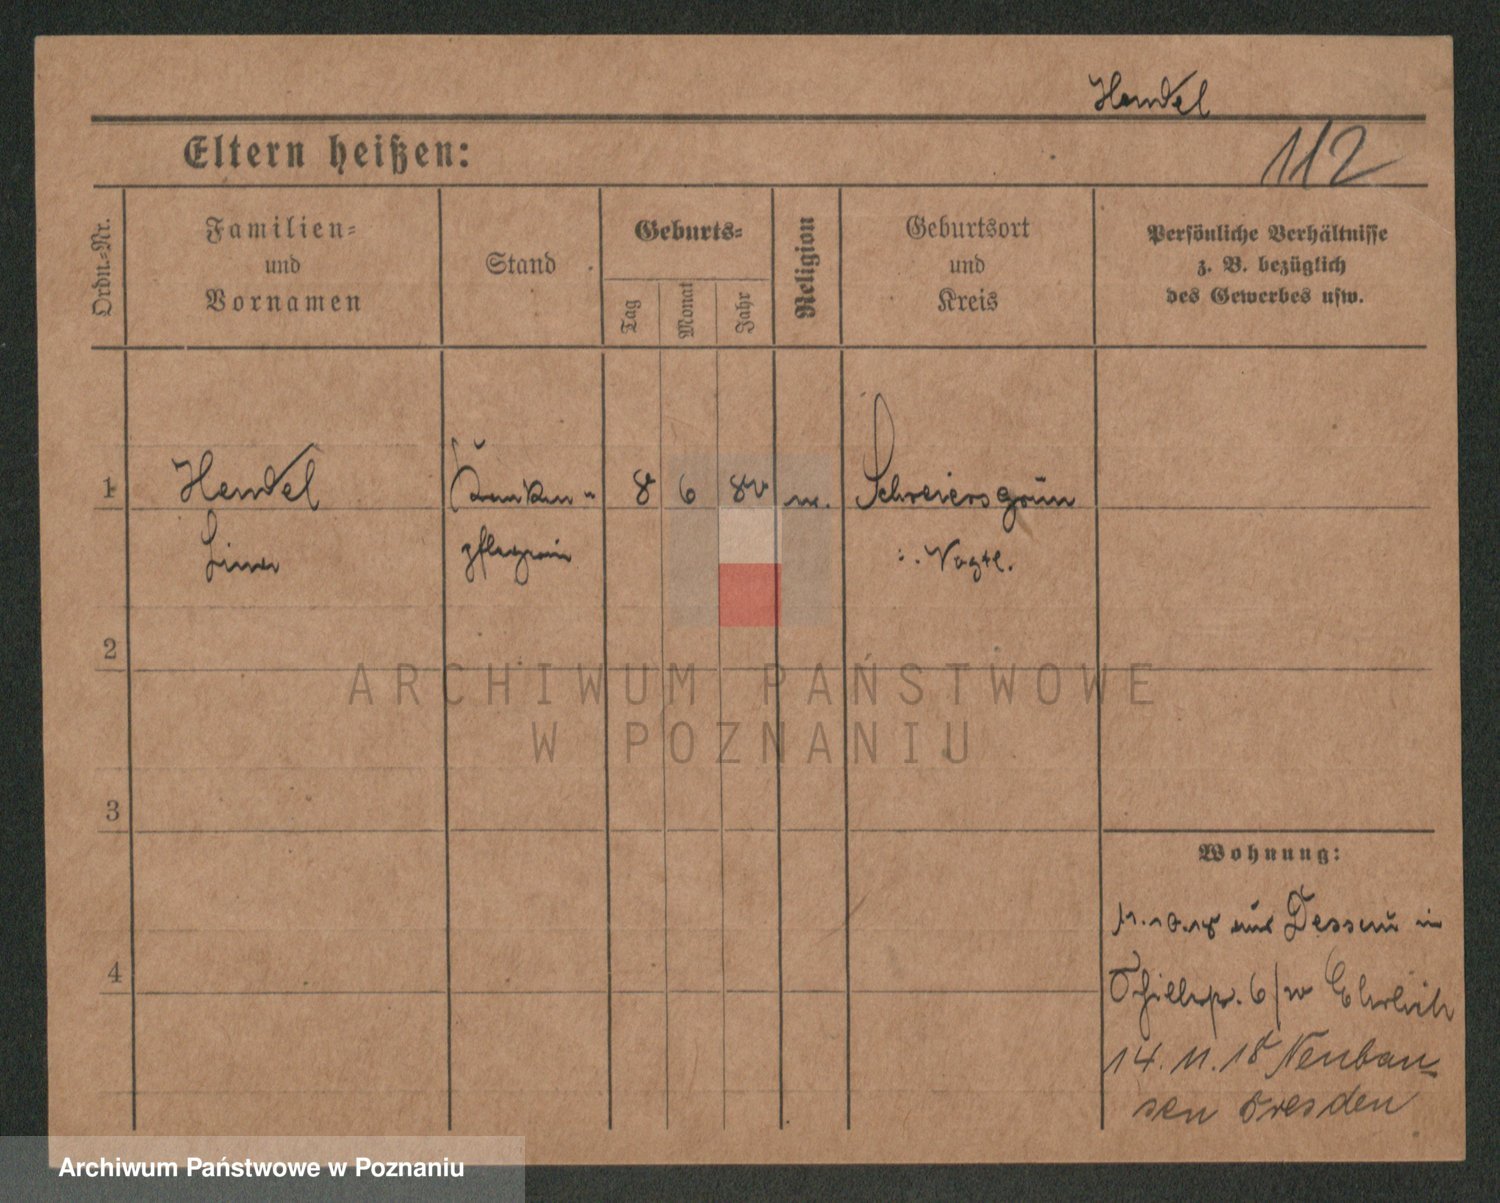 Hendel
Eltern heißen:
112
Ordn.-Nr.
Familien-
und
Vornamen
Stand
Geburts-
Tag
Monat
Jahr
Religion
Geburtsort
und
Kreis
Persönliche Verhältnisse
z. B. bezüglich
des Gewerbes usw.
1
Hendel
Kranken-
8
6
Schreiersgrün
pflegerin
i. Vogtl.
2
ARCHIWUM PAŃSTWOWE
W POZNANIU
3
Wohnung:
aus Dessau in
4
6/w Ehrlich
14.11.18 Neubau-
sen Dresden
Archiwum Państwowe w Poznaniu